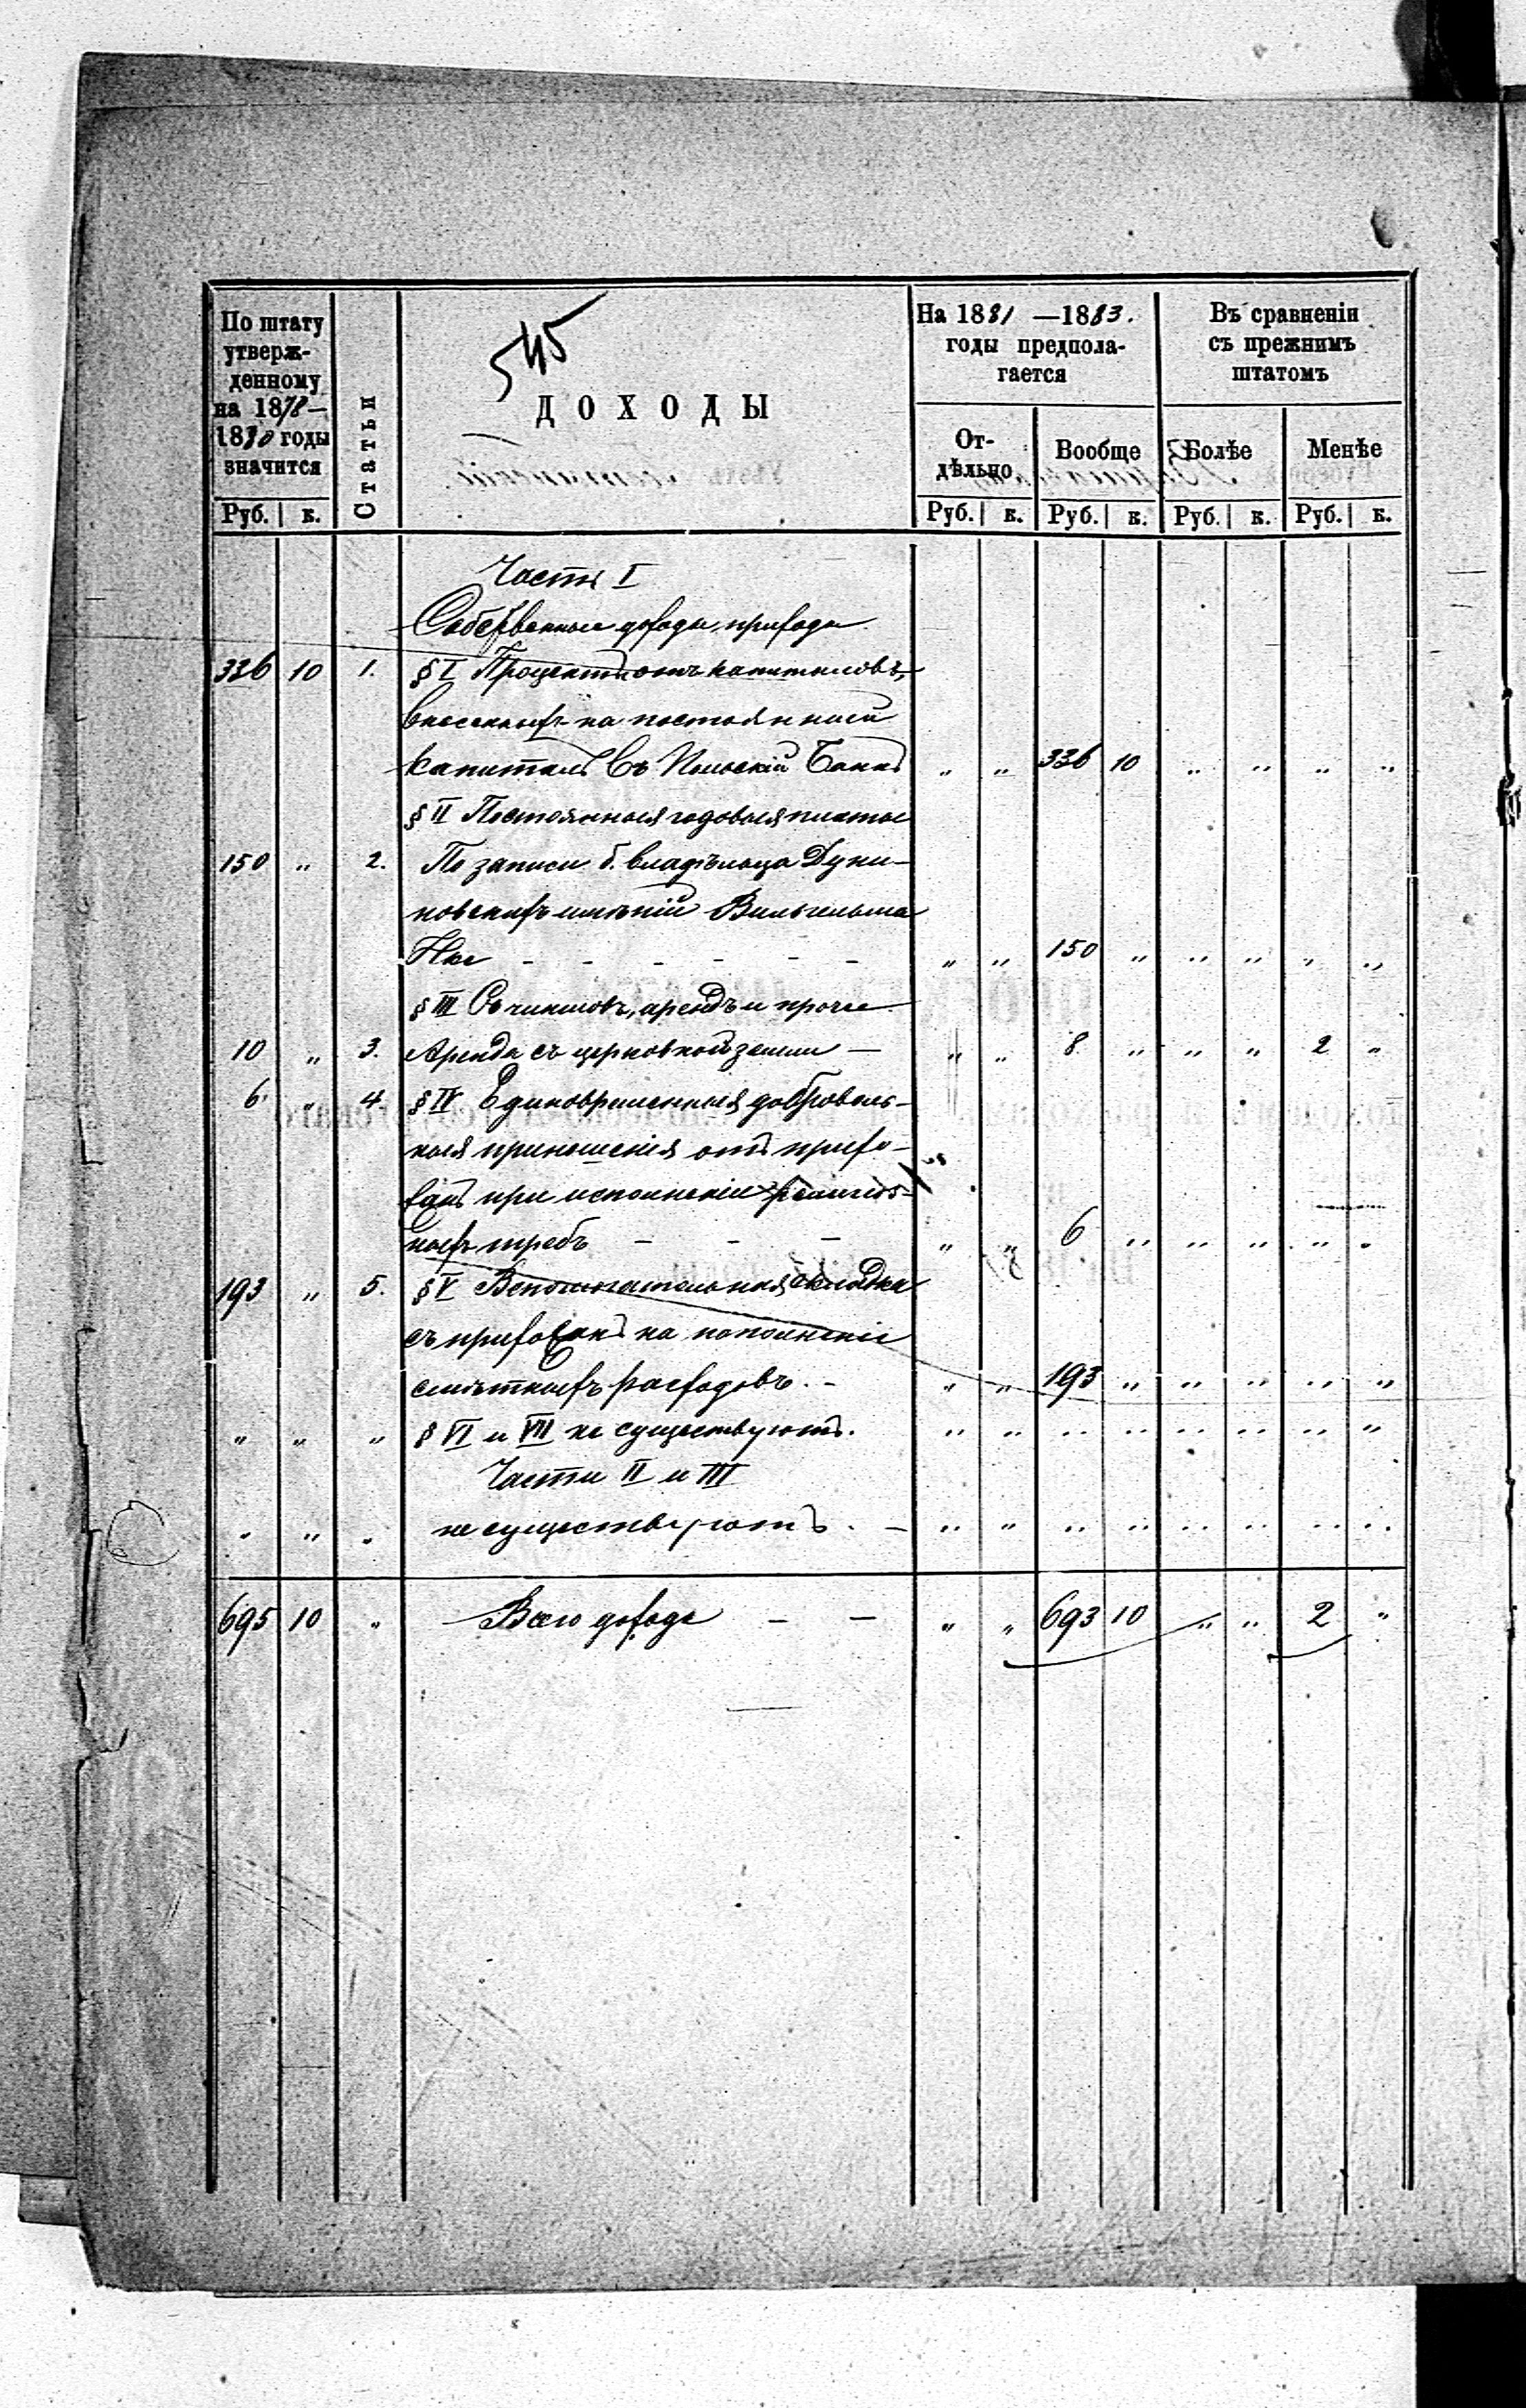 545
По штату утверж- денному на 1878— 1880 годы значится
Статьи
ДОХОДЫ
На 1881 —1883. годы предпола- гается
Въ сравненіи съ прежнимъ штатомъ
От- дѣльно
Вообще
Болѣе
Менѣе
Руб. к. Руб. к. Руб. к. Руб. к. Руб. к.
Часть I
Собственные доходы прихода
336 10 1. § I Проценты отъ капиталовъ,
внесенныхъ на постоянный
капиталъ въ Польскій Банкъ „ „ 336 10 „ „ „ „
§ II Постоянныя годовыя платы
150 „ 2. По записи б. владѣльца Дуни-
новскихъ имѣній Вильгельма
— — — — — — „ „ 150 „ „ „ „ „
§ III Съ чиншовъ, арендъ и проч.
10 „ 3. Аренда съ церковной земли — „ „ 8 „ „ „ 2 „
6 „ 4. § IV Единовременныя доброволь-
ныя приношенія отъ прихо-
жанъ при исполненіи религіоз-
ныхъ требъ — — — „ „ 6 „ „ „ „ „
193 „ 5. § V Вспомогательная складка
съ прихожанъ на пополненіе
смѣтныхъ расходовъ. — „ „ 193 „ „ „ „ „
„ „ „ § VI и VII не существуютъ. „ „ „ „ „ „ „ „
Части II и III
„ „ „ не существуютъ. — „ „ „ „ „ „ „ „
695 10 „ Всего дохода — — „ „ 693 10 „ „ 2 „